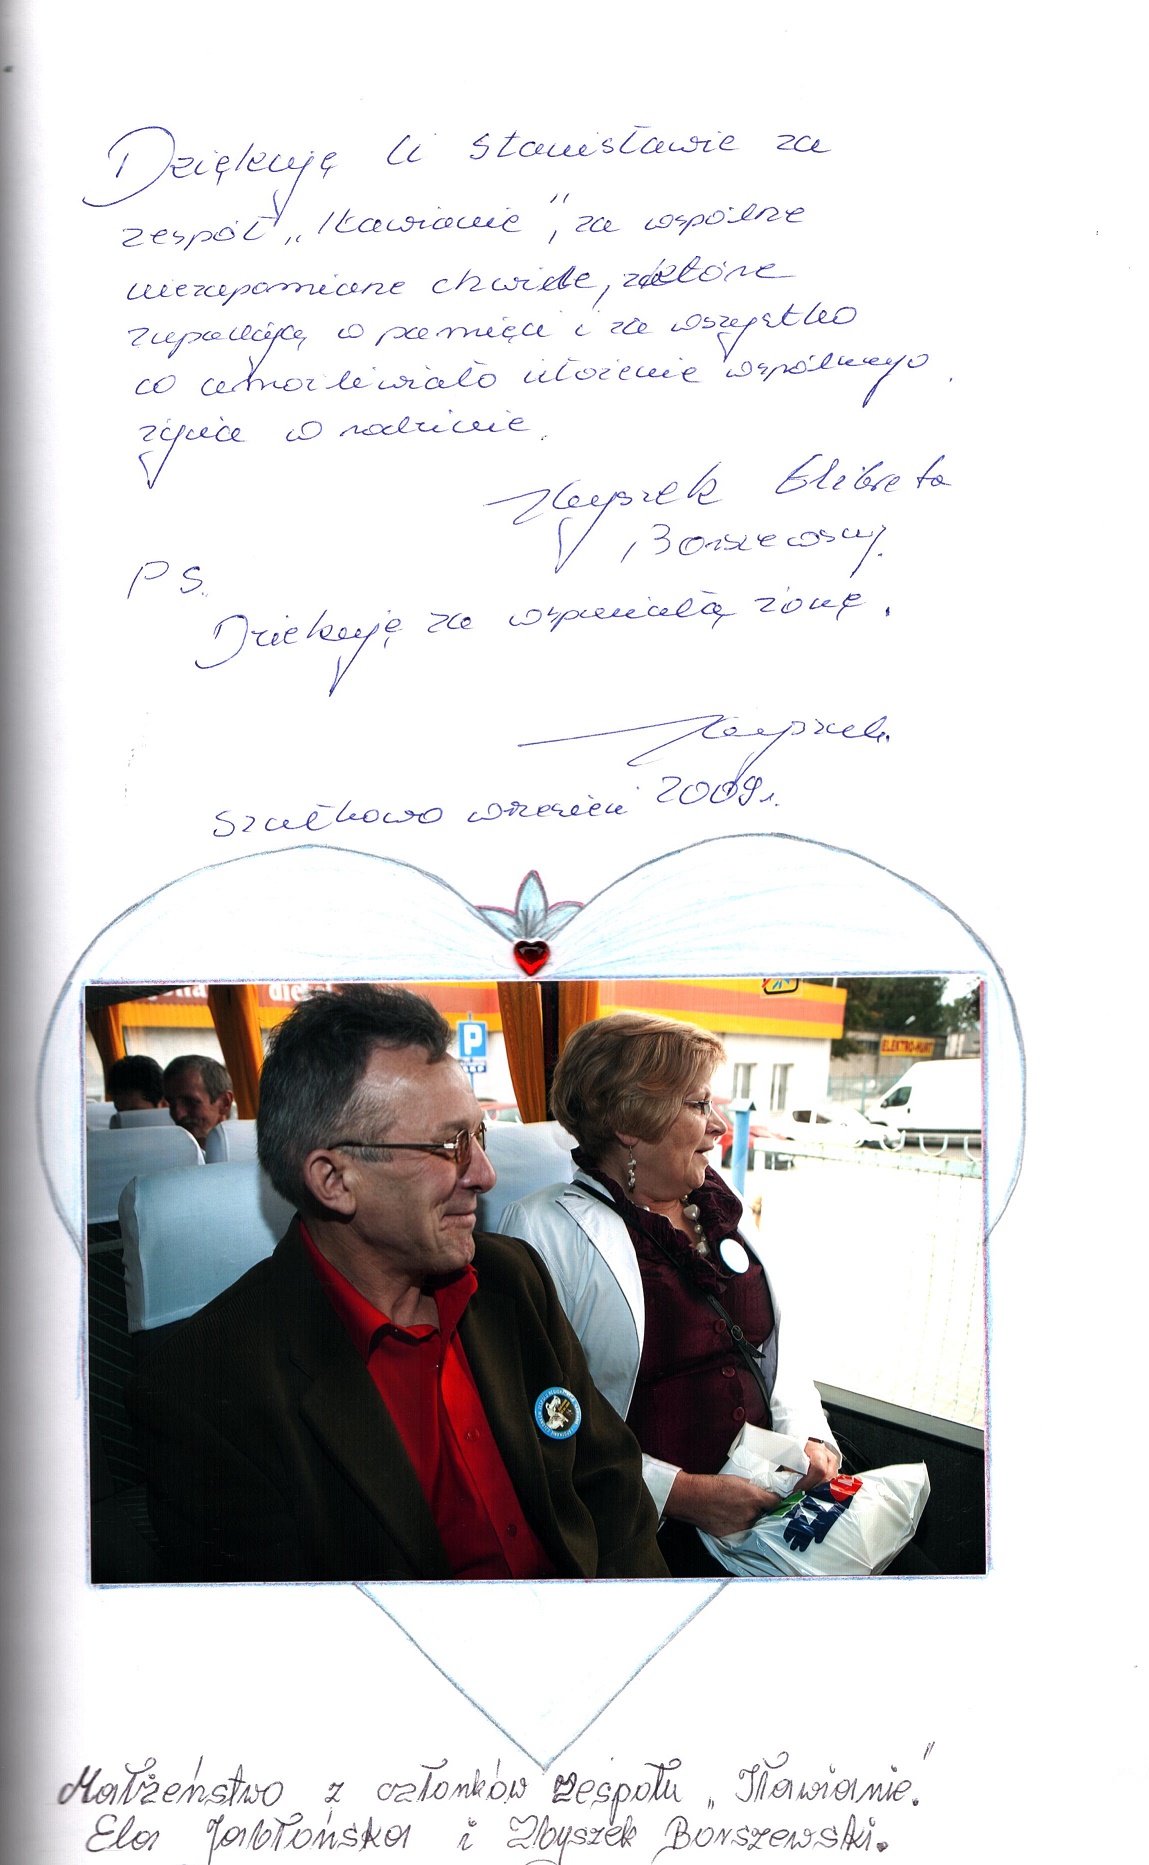 Dziękuję Ci Stanisławie za
zespół „Iławianie”, za wspólne
niezapomiane chwile, które
zapadają w pamięci i za wszystko
co umożliwiało ułożenie wspólnego
życia w rodzinie.
Zbyszek Elżbieta
Borszewscy.
PS.
Dziekuję za wspaniałą żonę.
Zbyszek.
Szałkowo wrzesień 2009r.
P
ELEKTRO-HURT
Małżeństwo z członków zespołu „Iławianie”.
Ela Jabłońska i Zbyszek Borszewski.